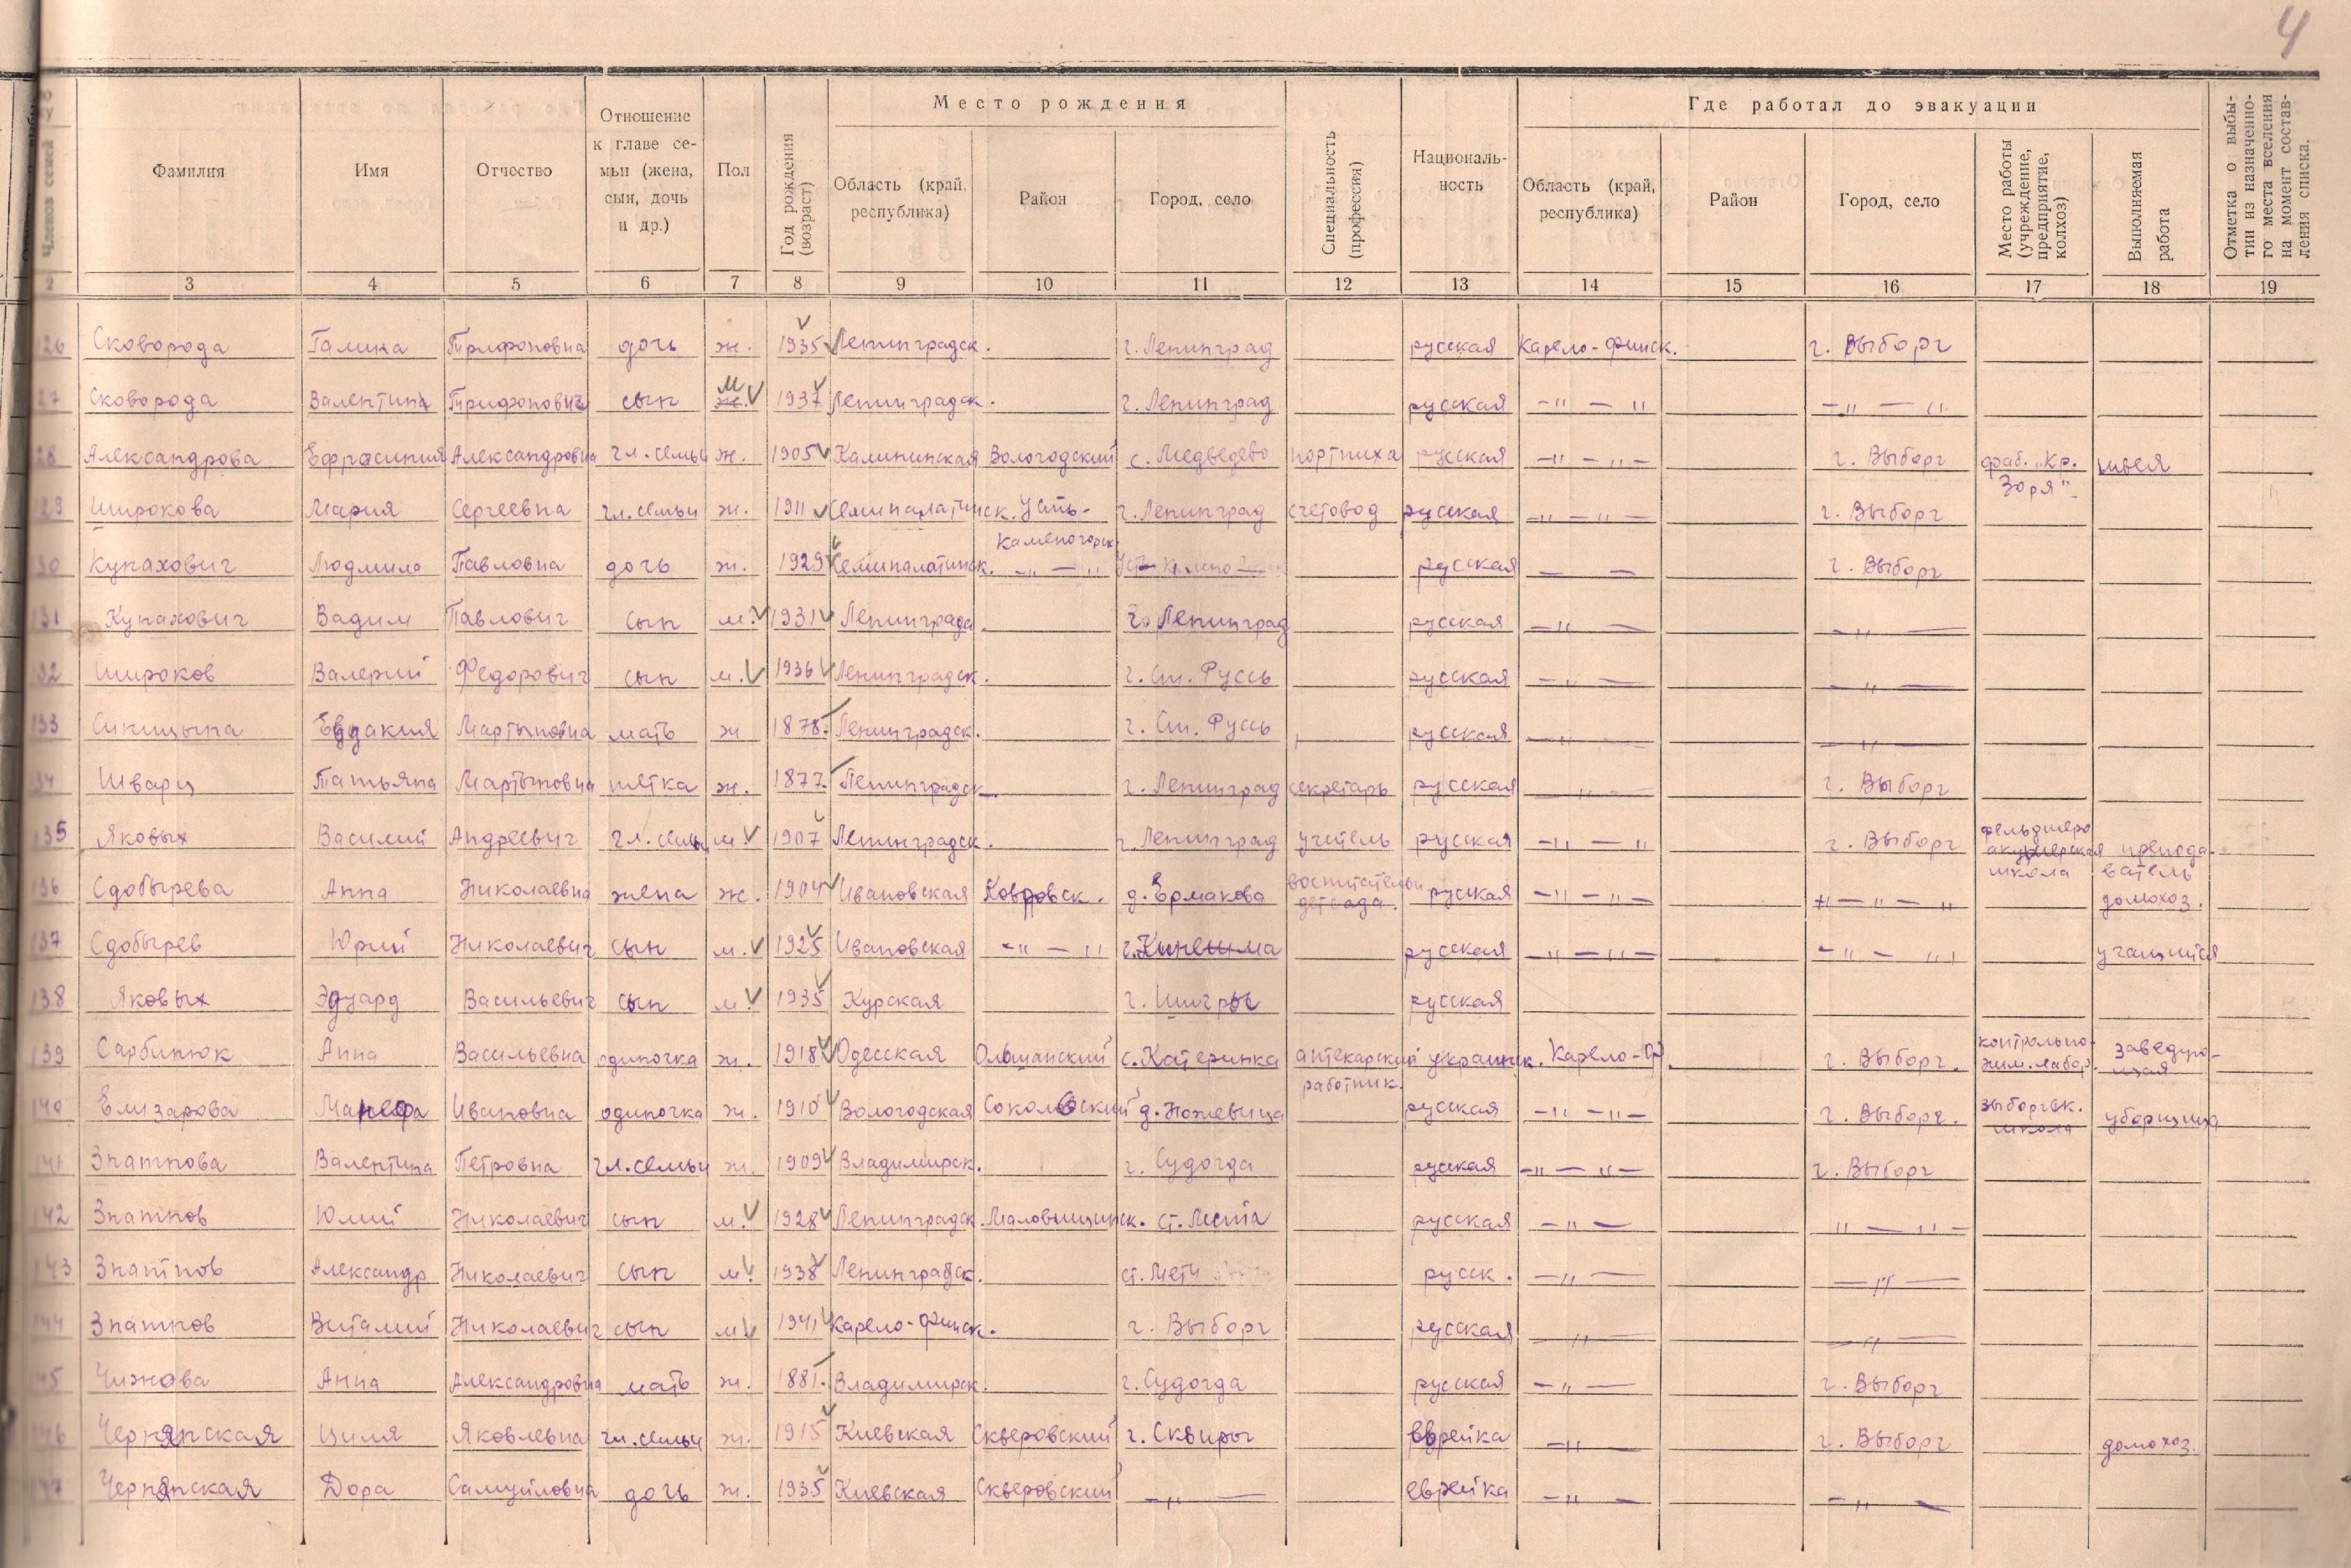 4
Место рождения
Где работал до эвакуации
Членов семей
Фамилия
Имя
Отчество
Отношение к главе се-
мьи (жена,
сын, дочь
и др.)
Пол
Год рождения
(возраст)
Область (край,
республика)
Район
Город, село
Специальность
(профессия)
Националь-
ность
Область (край,
республика)
Район
Город, село
Место работы
(учреждение,
предприятие,
колхоз)
Выполняемая
работа
Отметка о выбы-
тии из назначенно-
го места вселения
на момент состав-
ления списка.
2 3 4 5 6 7 8 9 10 11 12 13 14 15 16 17 18 19
126 Сковорода Галина Трифоновна дочь ж. 1935 Ленинградск. г. Ленинград русская Карело-Финск. г. Выборг
27 Сковорода Валентина Трифонович сын м ж. 1937 Ленинградск. г. Ленинград русская –"–" –"–"
28 Александрова Ефросиния Александровна гл. семьи ж. 1905 Калининская Вологодский с. Медведево портниха русская –"–"– г. Выборг фаб. "Кр. Заря" швея
29 Широкова Мария Сергеевна гл. семьи ж. 1911 Семипалатинск. Усть-Каменогорск г. Ленинград счетовод русская –"–"– г. Выборг
30 Кунахович Людмила Павловна дочь ж. 1929 Семипалатинск. –"–" русская – – г. Выборг
131 Кунахович Вадим Павлович сын м. 1931 Ленинградс. г. Ленинград русская –"– –"–
132 Широков Валерий Федорович сын м. 1936 Ленинградск. г. Ст. Руссь русская –"– –"–
133 Синицына Евдакия Мартыновна мать ж 1878. Ленинградск. г. Ст. Руссь русская –"– –"–
34 Шварц Татьяна Мартыновна тётка ж. 1877. Ленинградск. г. Ленинград секретарь русская –"– г. Выборг
135 Яковых Василий Андреевич гл. семьи м 1907 Ленинградск. г. Ленинград учитель русская –"–" г. Выборг фельдшеро акушерская школа препода-ватель
136 Сдобырева Анна Николаевна жена ж. 1904 Ивановская Ковровск. д. Ермакова воспитательн детсада. русская –"–"– "–"–" домохоз.
137 Сдобырев Юрий Николаевич сын м. 1925 Ивановская –"–" г. Кинешма русская –"–"– –"–" учащийся
138 Яковых Эдуард Васильевич сын м. 1935 Курская г. Щигры русская
139 Сарбинюк Анна Васильевна одиночка ж. 1918 Одесская Ольшанский с. Катеринка аптекарский работник. украинск. Карело-Ф. г. Выборг. контрольно-хим. лабор. заведую-щая
140 Елизарова Манефа Ивановна одиночка ж. 1910 Вологодская Сокольский д. Ножевица русская –"–"– г. Выборг. выборгск. школа уборщица
141 Знатнова Валентина Петровна гл. семьи ж. 1909 Владимирск. г. Судогда русская –"–"– г. Выборг
142 Знатнов Юлий Николаевич сын м. 1928 Ленинградск. Маловишинск. ст. Мста русская –"– "–"–
143 Знатнов Александр Николаевич сын м. 1938 Ленинградск. ст. Мсти русск. –"– –"–
144 Знатнов Виталий Николаевич сын м. 1941 Карело-Финск. г. Выборг русская –"– –"–
145 Чижова Анна Александровна мать ж. 1881. Владимирск. г. Судогда русская –"– г. Выборг
146 Чернянская Циля Яковлевна гл. семьи ж. 1915 Киевская Скверовский г. Сквиры еврейка –"– г. Выборг домохоз.
147 Чернянская Дора Самуйловна дочь ж. 1935 Киевская Скверовский –"– еврейка –"– –"–